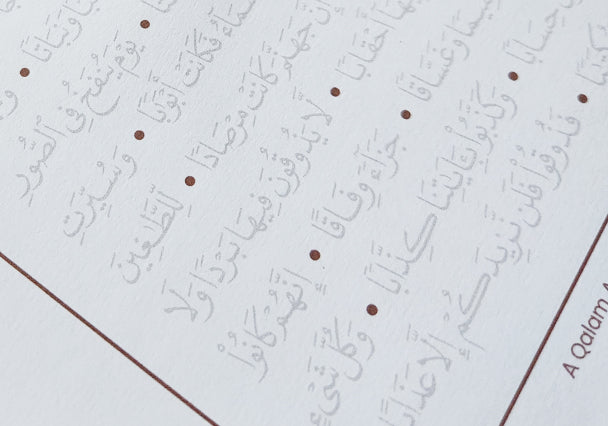 وَنَبَاتًا
يَوْمَ يُنفَخُ فِى ٱلصُّورِ
فَكَانَتْ أَبْوَٰبًا • وَسُيِّرَتِ
إِنَّ جَهَنَّمَ كَانَتْ مِرْصَادًا • لِّلطَّـٰغِينَ
أَحْقَابًا • لَّا يَذُوقُونَ فِيهَا بَرْدًا وَلَا
وَغَسَّاقًا • جَزَآءً وِفَاقًا • إِنَّهُمْ كَانُوا۟
حِسَابًا • وَكَذَّبُوا۟ بِـَٔايَـٰتِنَا كِذَّابًا • وَكُلَّ شَىْءٍ
فَذُوقُوا۟ فَلَن نَّزِيدَكُمْ إِلَّا عَذَابًا
A Qalam